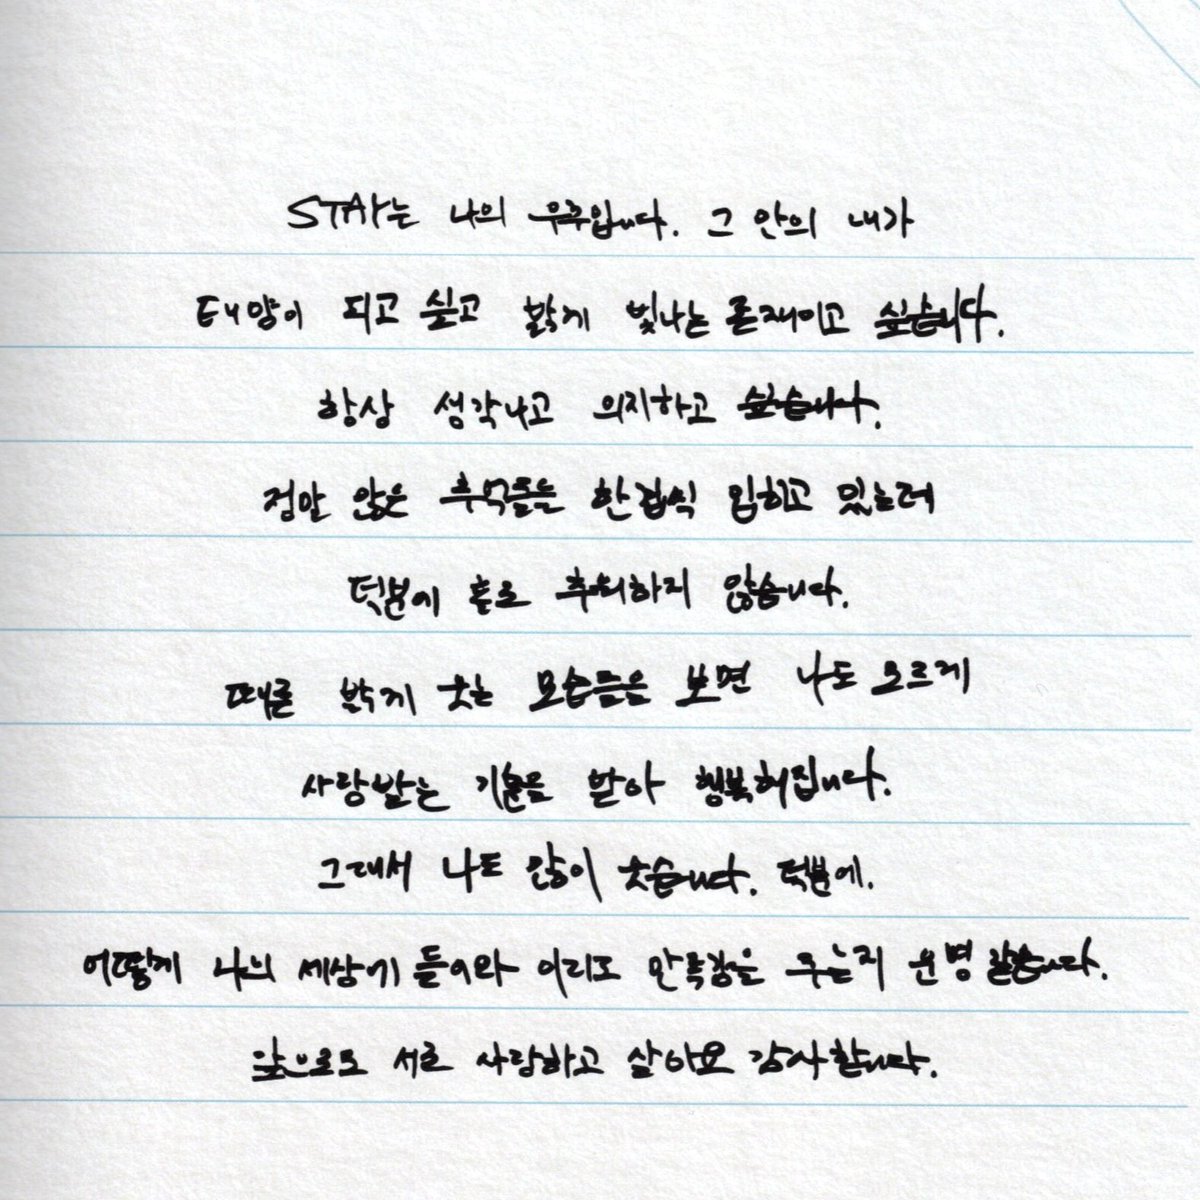 STAY는 나의 우주입니다. 그 안의 내가
태양이 되고 싶고 밝게 빛나는 존재이고 싶습니다.
항상 생각나고 의지하고 싶습니다.
정말 많은 추억들을 한겹씩 입히고 있는데
덕분에 홀로 추워하지 않습니다.
때론 밝게 웃는 모습들을 보면 나도 모르게
사랑받는 기분을 받아 행복해집니다.
그래서 나도 많이 웃습니다. 덕분에.
어떻게 나의 세상에 들어와 이리도 만족감을 주는지 운명 같습니다.
앞으로도 서로 사랑하고 살아요 감사합니다.